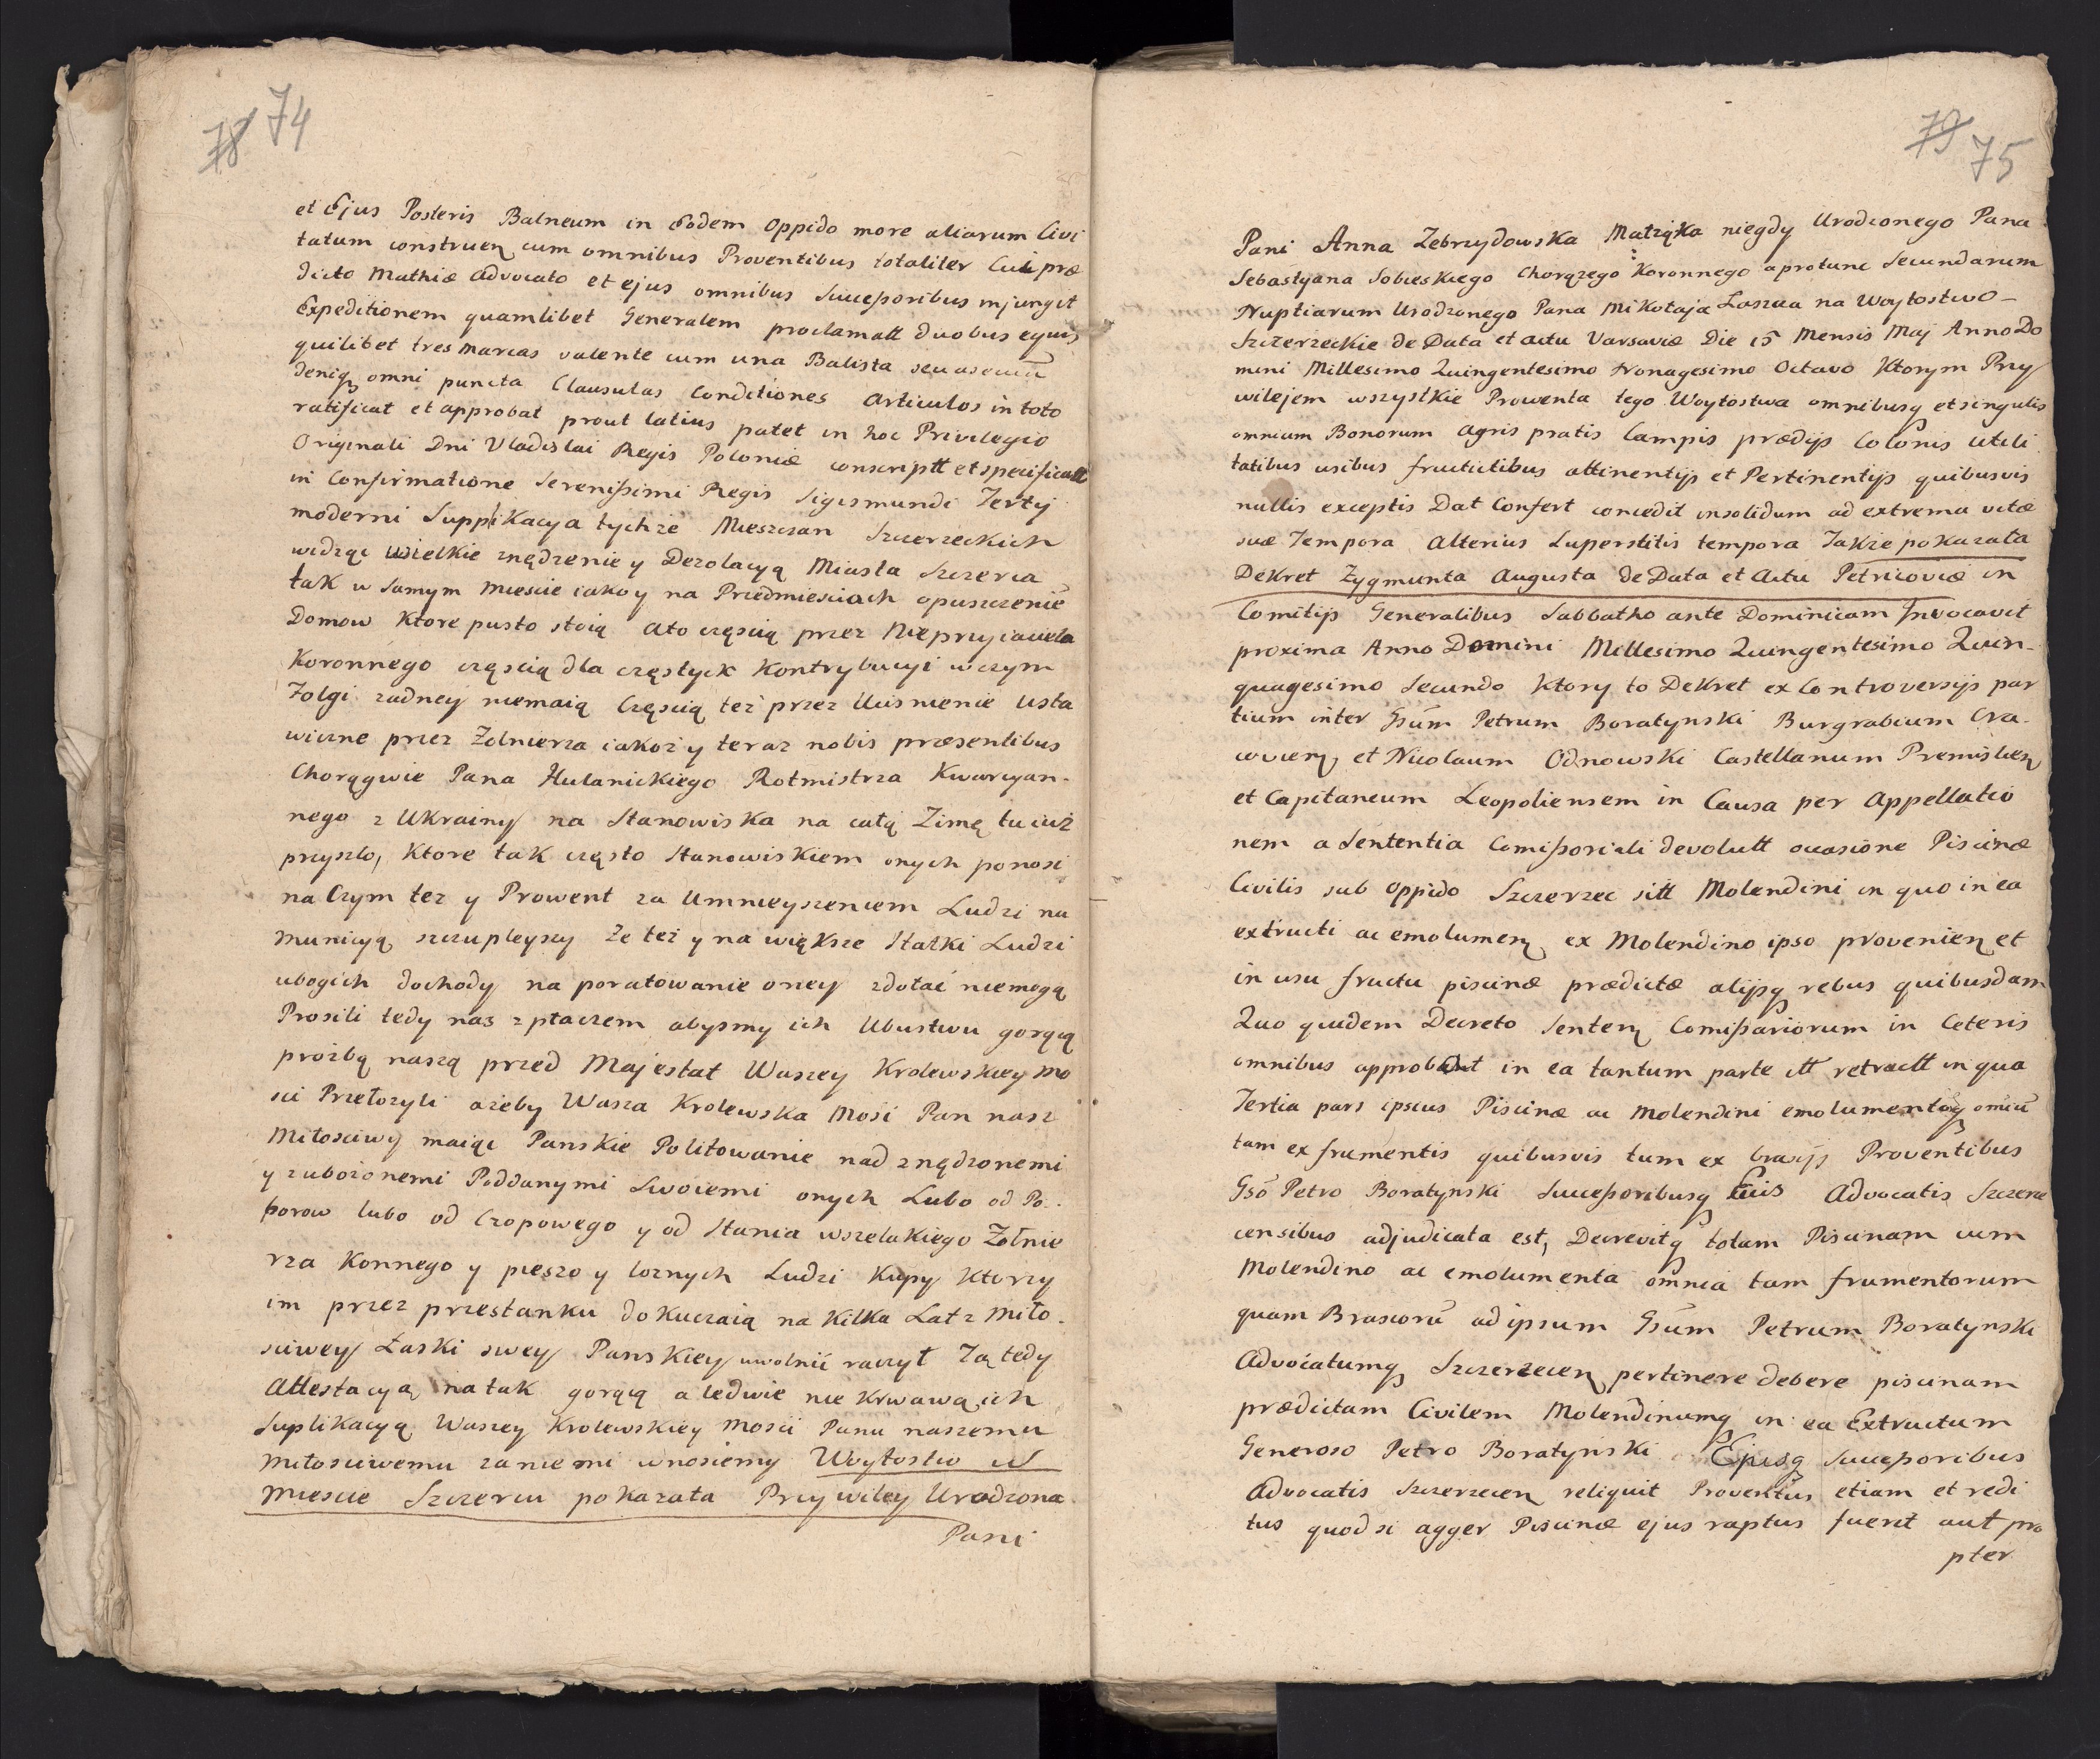 78 74
et Ejus Posteris Balneum in Eodem Oppido more aliarum Civi
tatum construen cum omnibus Proventibus totaliter Cui præ
dicto Mathiæ Advocato et ejus omnibus Successoribus injungit
Expeditionem quamlibet Generalem proclamatt duobus equis
quilibet tres marcas valente cum una Balista seu
deniq omni puncta Clausulas Conditiones Articulos in toto
ratificat et approbat prout latius patet in hoc Privilegio
Originali Dni Vladislai Regis Poloniæ conscriptt et specificatt
in Confirmatione Serenissimi Regis Sigismundi Tertij
moderni Supplikacya tychże Mieszczan Szczerzeckich
widząc wielkie znędzenie y Dezolacyą Miasta Szczerca
tak w samym miescie iako y na Przedmiesciach opuszczenie
Domow Ktore pusto stoią Ato częscią przez Nieprzyiaciela
Koronnego częscią dla częstych Kontrybucyi w czym
Folgi zadney niemaią Częscią też przez Ucisnienie Usta
wiczne przez Zolnierza iakoż y teraz nobis præsentibus
Chorągwie Pana Hulanickiego Rotmistrza Kwarcyan-
nego z Ukrainy na Stanowiska na całą Zimę tu iuż
przyszło, Ktore tak często Stanowiskiem onych ponosi
na Czym tez y Prowent za Umnieyszeniem Ludzi na
municyą szczupleyszy Ze też y na większe Statki Ludzi
ubogich dochody na poratowanie oney zdołać niemogą
Prosili tedy nas z płaczem abysmy ich Ubustwu gorącą
prożbą naszą przed Majestat Waszey Krolewskiey Mo
sci Przełozyli ażeby Wasza Krolewska Mosc Pan nasz
Miłosciwy maiąc Panskie Politowanie nad znędzonemi
y zubożonemi Poddanymi Swoiemi onych Lubo od Po-
borow lubo od Czopowego y od Stania wszelakiego Żołnie
rza Konnego y pieszo y loznych Ludzi Kupy Ktorzy
im przez przestanku dokuczaią na Kilka Lat z Miło-
sciwey Łaski swey Panskiey uwolnić raczył Zą tedy
Attestacyą na tak gorącą a ledwie nie Krwawą ich
Suplikacyą Waszey Krolewskiey Mosci Panu naszemu
Miłosciwemu za niemi wnosiemy Woytostwo W
Miescie Szczercu pokazała Przywiley Urodzona
Pani
79 75
Pani Anna Zebrzydowska Matząka niegdy Urodzonego Pana
Sebastyana Sobieskiego Chorązego Koronnego a protunc Secundarum
Nuptiarum Urodzonego Pana Mikołaja Łaszcza na Woytostwo-
Szczerzeckie de Data et actu Varsaviæ Die 15 Mensis Maj Anno Do
mini Millesimo Quingentesimo Nonagesimo Octavo Ktorym Przy
wilejem wszystkie Prowenta tego Woytostwa omnibusq et singulis
omnium Bonorum agris pratis Campis prædijs Colonis Utili
tatibus usibus fructitibus attinentijs et Pertinentijs quibusvis
nullis exceptis Dat Confert concedit insolidum ad extrema vitæ
suæ Tempora Alterius Superstitis tempora Takze pokazała
Dekret Zygmunta Augusta de Data et Actu Petricoviæ in
Comitijs Generalibus Sabbatho ante Dominicam Invocavit
proxima Anno Domini Millesimo Quingentesimo Quin-
quagesimo Secundo Ktory to Dekret ex Controversijs par
tium inter Gsum Petrum Boratynski Burgrabium Cra-
covien et Nicolaum Odnowski Castellanum Premislien
et Capitaneum Leopoliensem in Causa per Appellatio
nem a Sententia Comissoriali devolutt occasione Piscinæ
Civilis sub Oppido Szczerzec sitt Molendini in quo in ea
extructi ac emolumen ex Molendino ipso provenien et
in usu fructu piscinæ prædictæ alijsq rebus quibusdam
Quo quidem Decreto Senten Comissariorum in Ceteris
omnibus approbant in ea tantum parte itt retractt in qua
Tertia pars ipsius Piscinæ ac Molendini emolumentoq omiu
tam ex frumentis quibusvis tum ex brasijs Proventibus
Gso Petro Boratynski Successoribusq Suis Advocatis Szczerze
censibus adjudicata est, Decrevitq totam Piscinam cum
Molendino ac emolumenta omnia tam frumentorum
quam Brasiorū ad ipsum Gsum Petrum Boratynski
Advocatumq Szczerzecen pertinere debere piscinam
prædictam Civilem Molendinumq in ea Extructum
Generoso Petro Boratynski Ejusq Successoribus
Advocatis Szczerzecen reliquit Proventus etiam et redi
tus quod si agger Piscinæ ejus raptus fuerit aut pro
pter